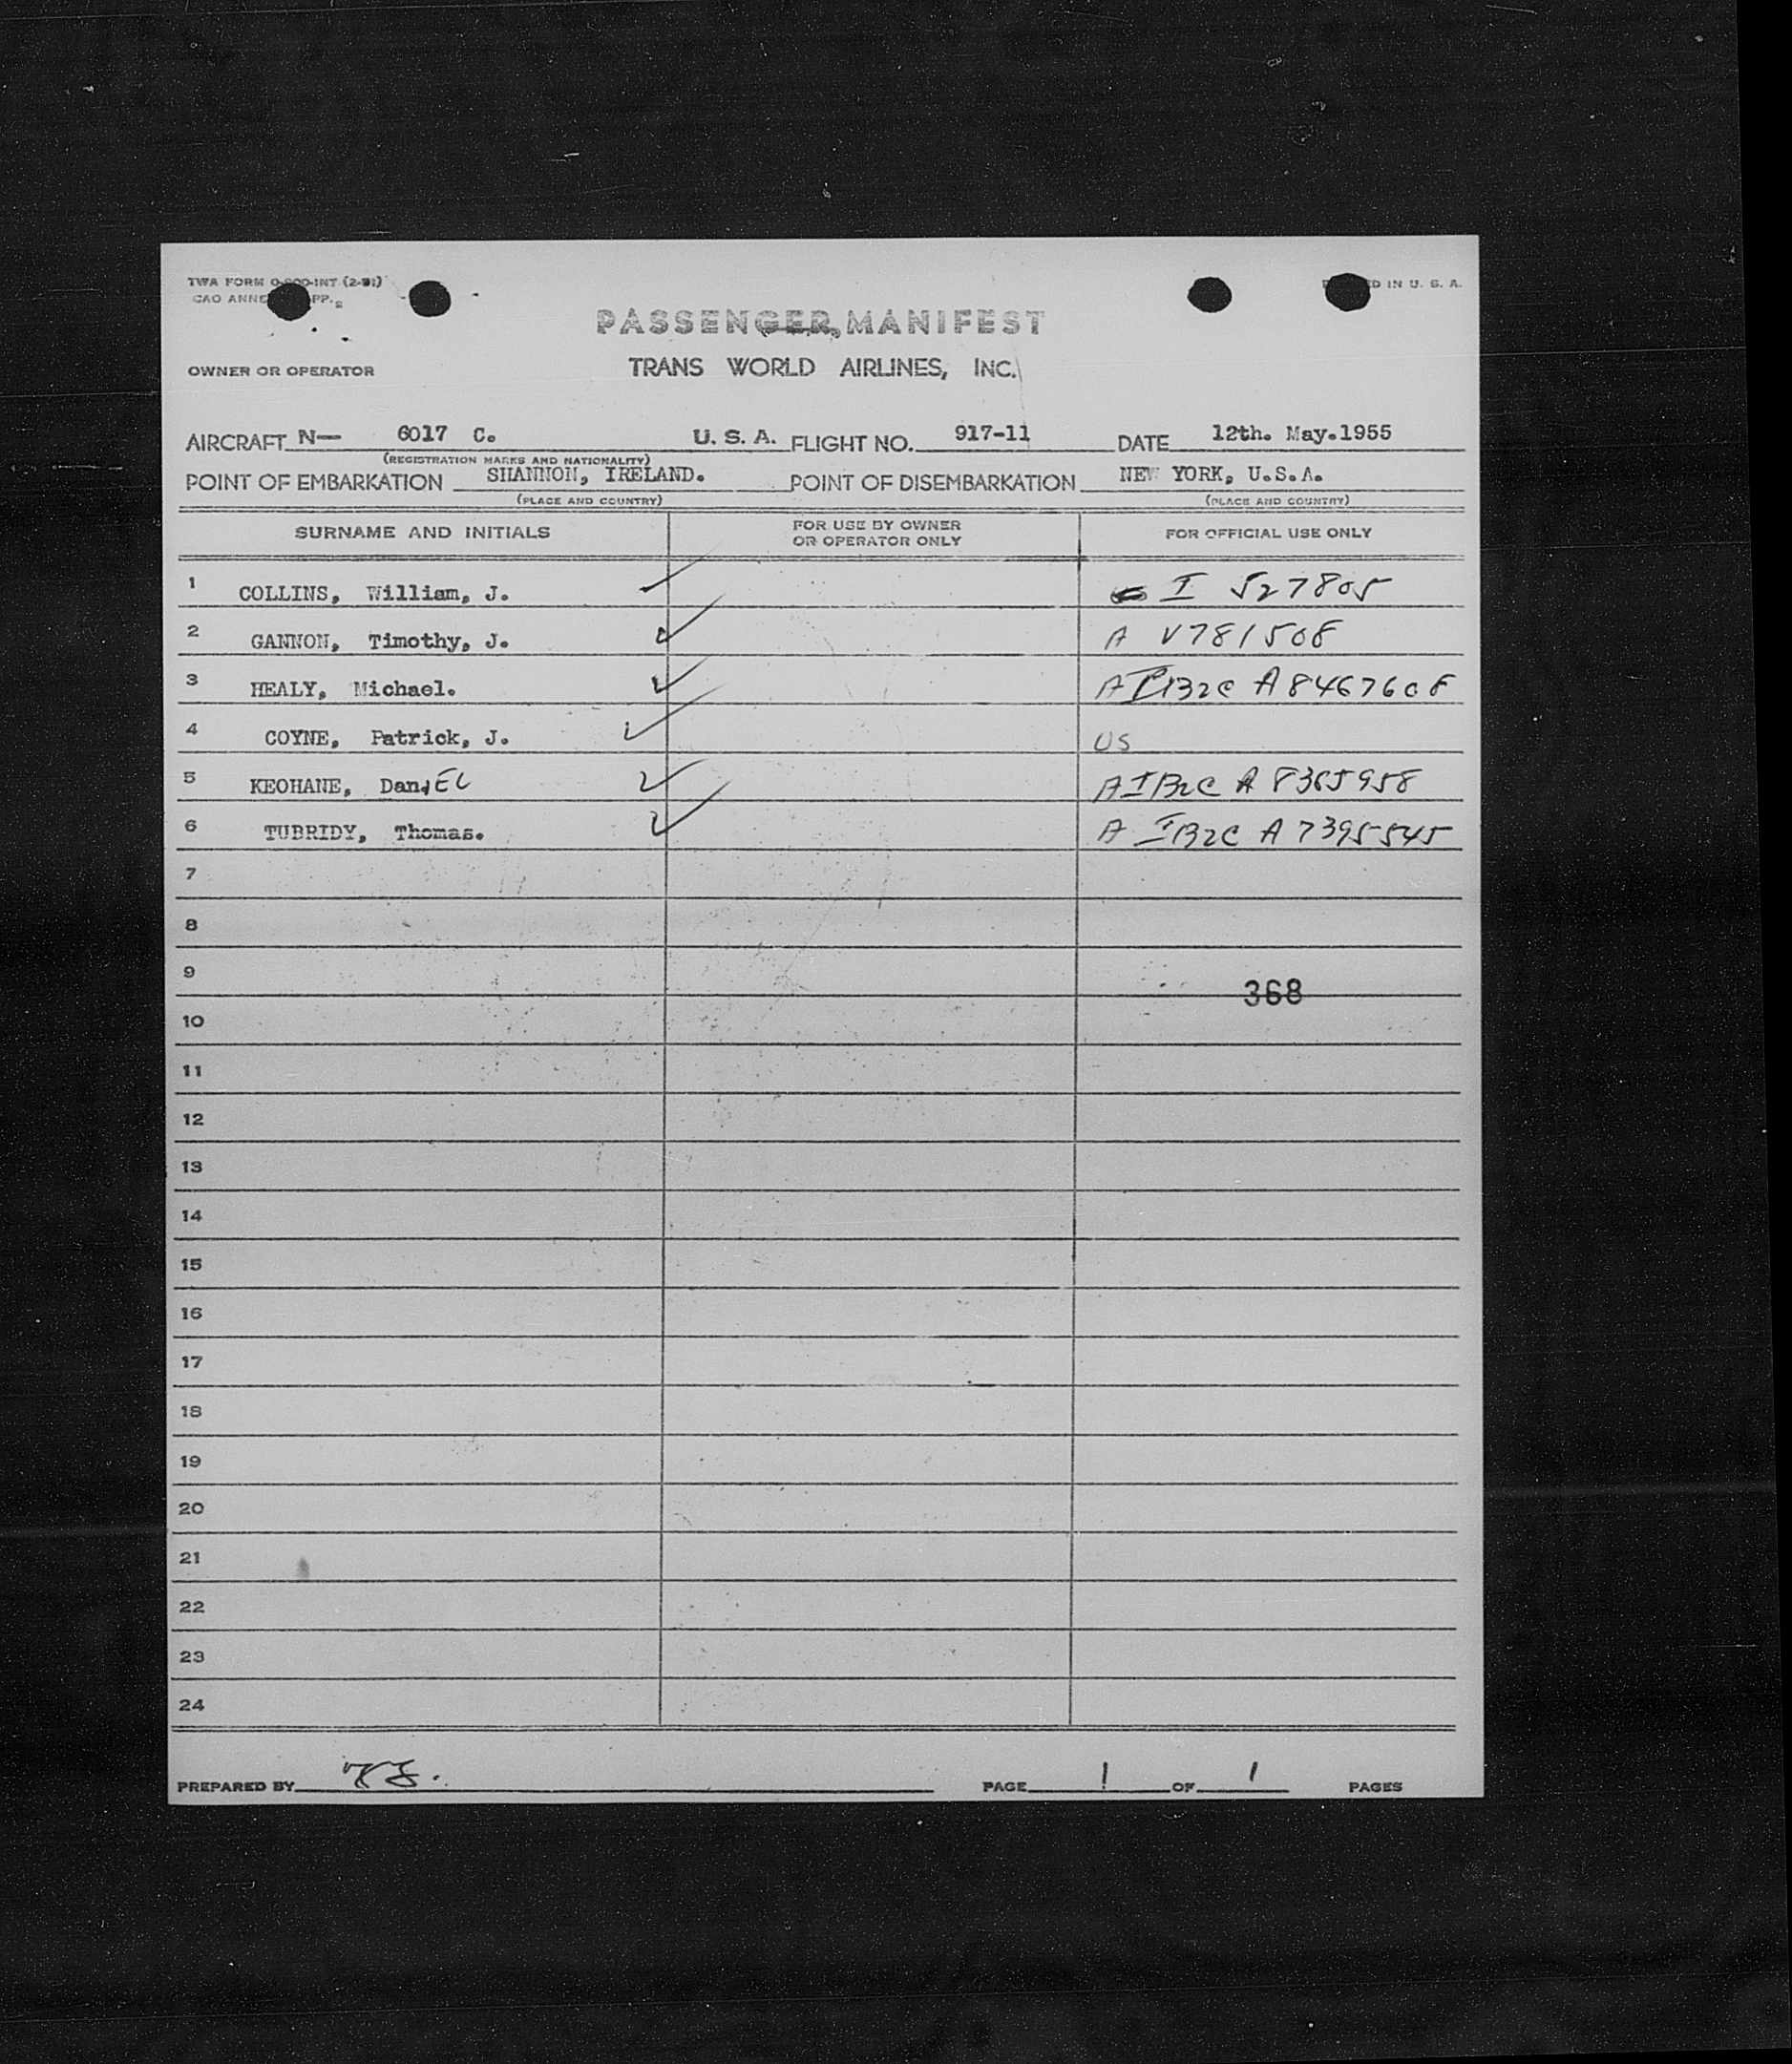 TWA FORM
CAO ANNE PP.
IN U. S. A.
PASSENGER MANIFEST
OWNER OR OPERATOR
TRANS WORLD AIRLINES, INC.
AIRCRAFT N— 6017 C. U. S. A. FLIGHT NO. 917-11 DATE 12th. May.1955
(REGISTRATION MARKS AND NATIONALITY)
POINT OF EMBARKATION SHANNON, IRELAND. POINT OF DISEMBARKATION NEW YORK, U.S.A.
(PLACE AND COUNTRY) (PLACE AND COUNTRY)
SURNAME AND INITIALS FOR USE BY OWNER OR OPERATOR ONLY FOR OFFICIAL USE ONLY
1 COLLINS, William, J. I 527805
2 GANNON, Timothy, J. A V781508
3 HEALY, Michael. A8467608
4 COYNE, Patrick, J. US
5 KEOHANE, DaniEL A IB2C A 8365958
6 TUBRIDY, Thomas. A IB2C A 7395545
7
8
9
368
10
11
12
13
14
15
16
17
18
19
20
21
22
23
24
PREPARED BY PAGE 1 OF 1 PAGES